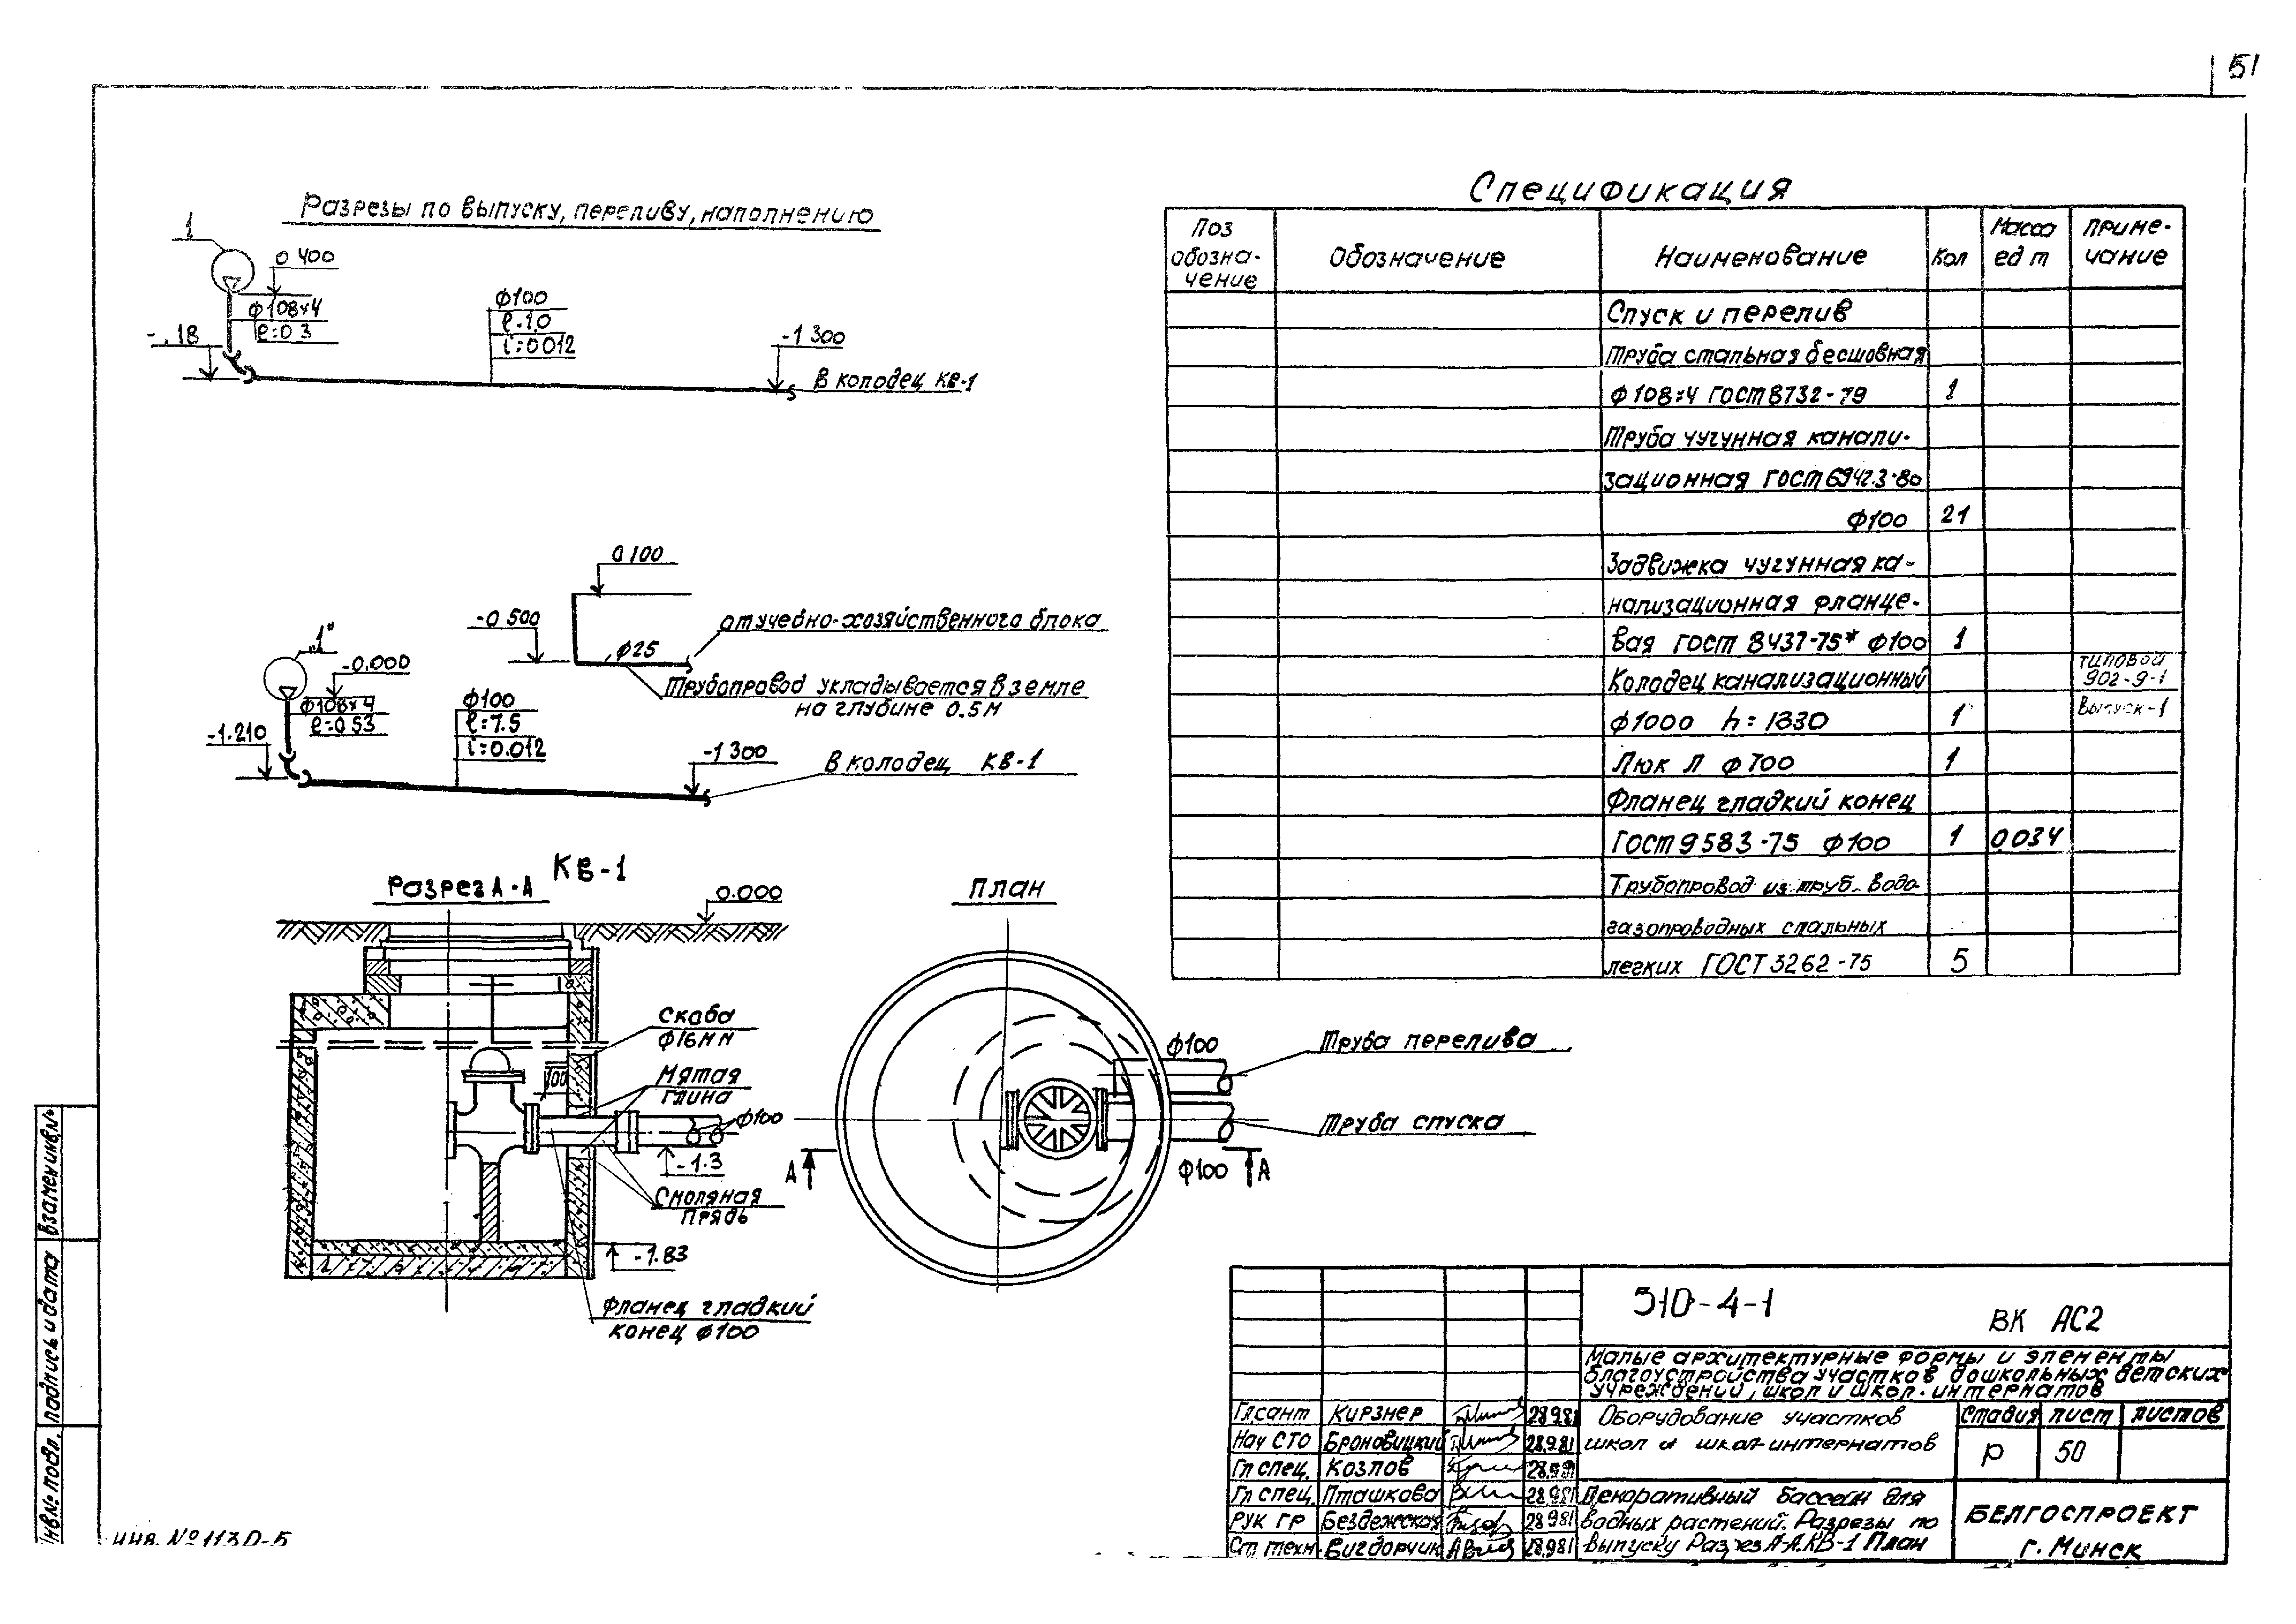 51
Разрезы по выпуску, переливу, наполнению
1
0 400
ф108×4
ℓ=0 3
-.18
ф100
ℓ-1,0
i=0 012
-1 300
В колодец КВ-1
0 100
-0 500
ф25
от учебно-хозяйственного блока
Трубопровод укладывается в земле
на глубине 0.5м
„1"
-0.000
ф108×4
ℓ=0 53
-1.210
ф100
ℓ=7.5
i=0.012
-1 300
В колодец КВ-1
КВ-1
Разрез А-А
0.000
Скоба
ф16мм
100
Мятая
глина
ф100
-1.3
Смоляная
прядь
-1.83
Фланец гладкий
конец ф100
План
ф100
Труба перелива
Труба спуска
ф100
А
А
Спецификация
Поз
обозна-
чение
Обозначение
Наименование
Кол
Масса
ед т
Приме-
чание
Спуск и перелив
Труба стальная бесшовная
ф108×4 ГОСТ 8732-79 1
Труба чугунная канали-
зационная ГОСТ 6942.3-80
ф100 21
Задвижка чугунная ка-
нализационная фланце-
вая ГОСТ 8437-75* ф100 1
Колодец канализационный типовой 902-9-1
ф1000 h=1830 1 Выпуск-1
Люк Л ф700 1
Фланец гладкий конец
ГОСТ 9583-75 ф100 1 0,034
Трубопровод из труб водо-
газопроводных стальных
легких ГОСТ 3262-75 5
310-4-1
ВК АС2
Малые архитектурные формы и элементы
благоустройства участков дошкольных детских
учреждений, школ и школ-интернатов
Гл сант Кирзнер 28.9.81
Нач СТО Броновицкий 28.9.81
Гл спец. Козлов 28.9.81
Гл спец. Пташкова 28.9.81
Рук гр Бездежская 28.9.81
Ст техн. Вигдорчик 28.9.81
Оборудование участков
школ и школ-интернатов
Стадия лист листов
Р 50
Декоративный бассейн для
водных растений. Разрезы по
выпуску Разрез А-А. КВ-1 План
БЕЛГОСПРОЕКТ
г. Минск
Взамен инв.№
Подпись и дата
Инв № подл.
Инв. № 1130-5